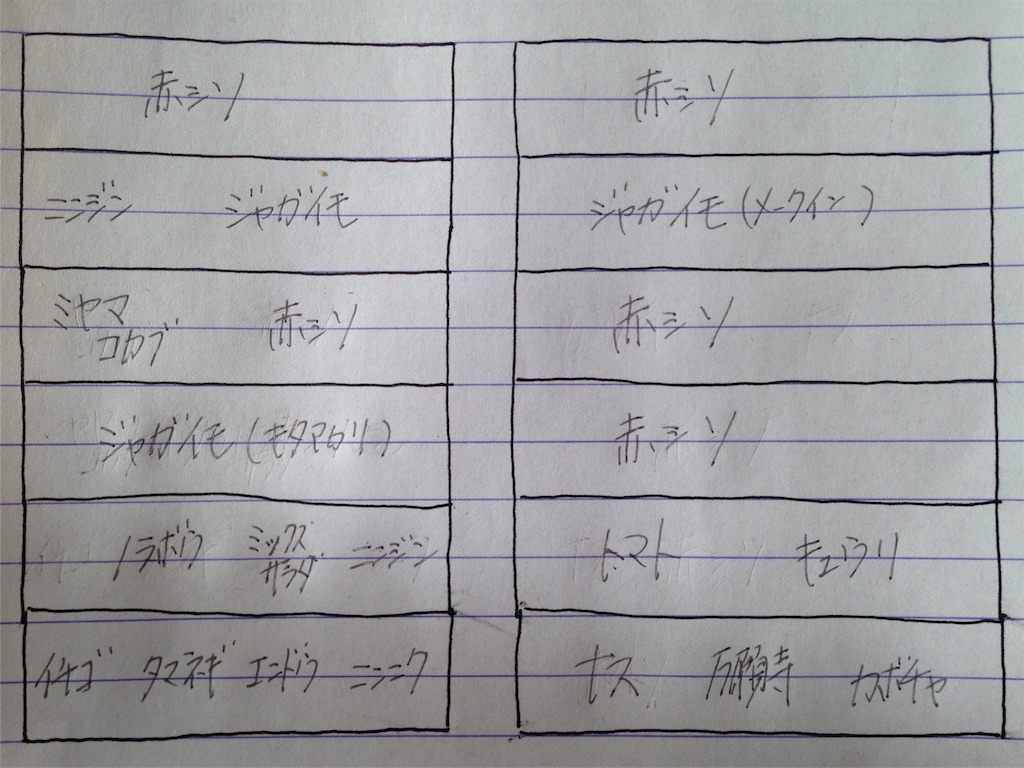 赤シソ
ニンジン ジャガイモ
ミヤマ
コカブ 赤シソ
ジャガイモ(キタアカリ)
ノラボウ ミックス
サラダ ニンジン
イチゴ タマネギ エンドウ ニンニク
赤シソ
ジャガイモ(メークイン)
赤シソ
赤シソ
トマト キュウリ
ナス 万願寺 カボチャ